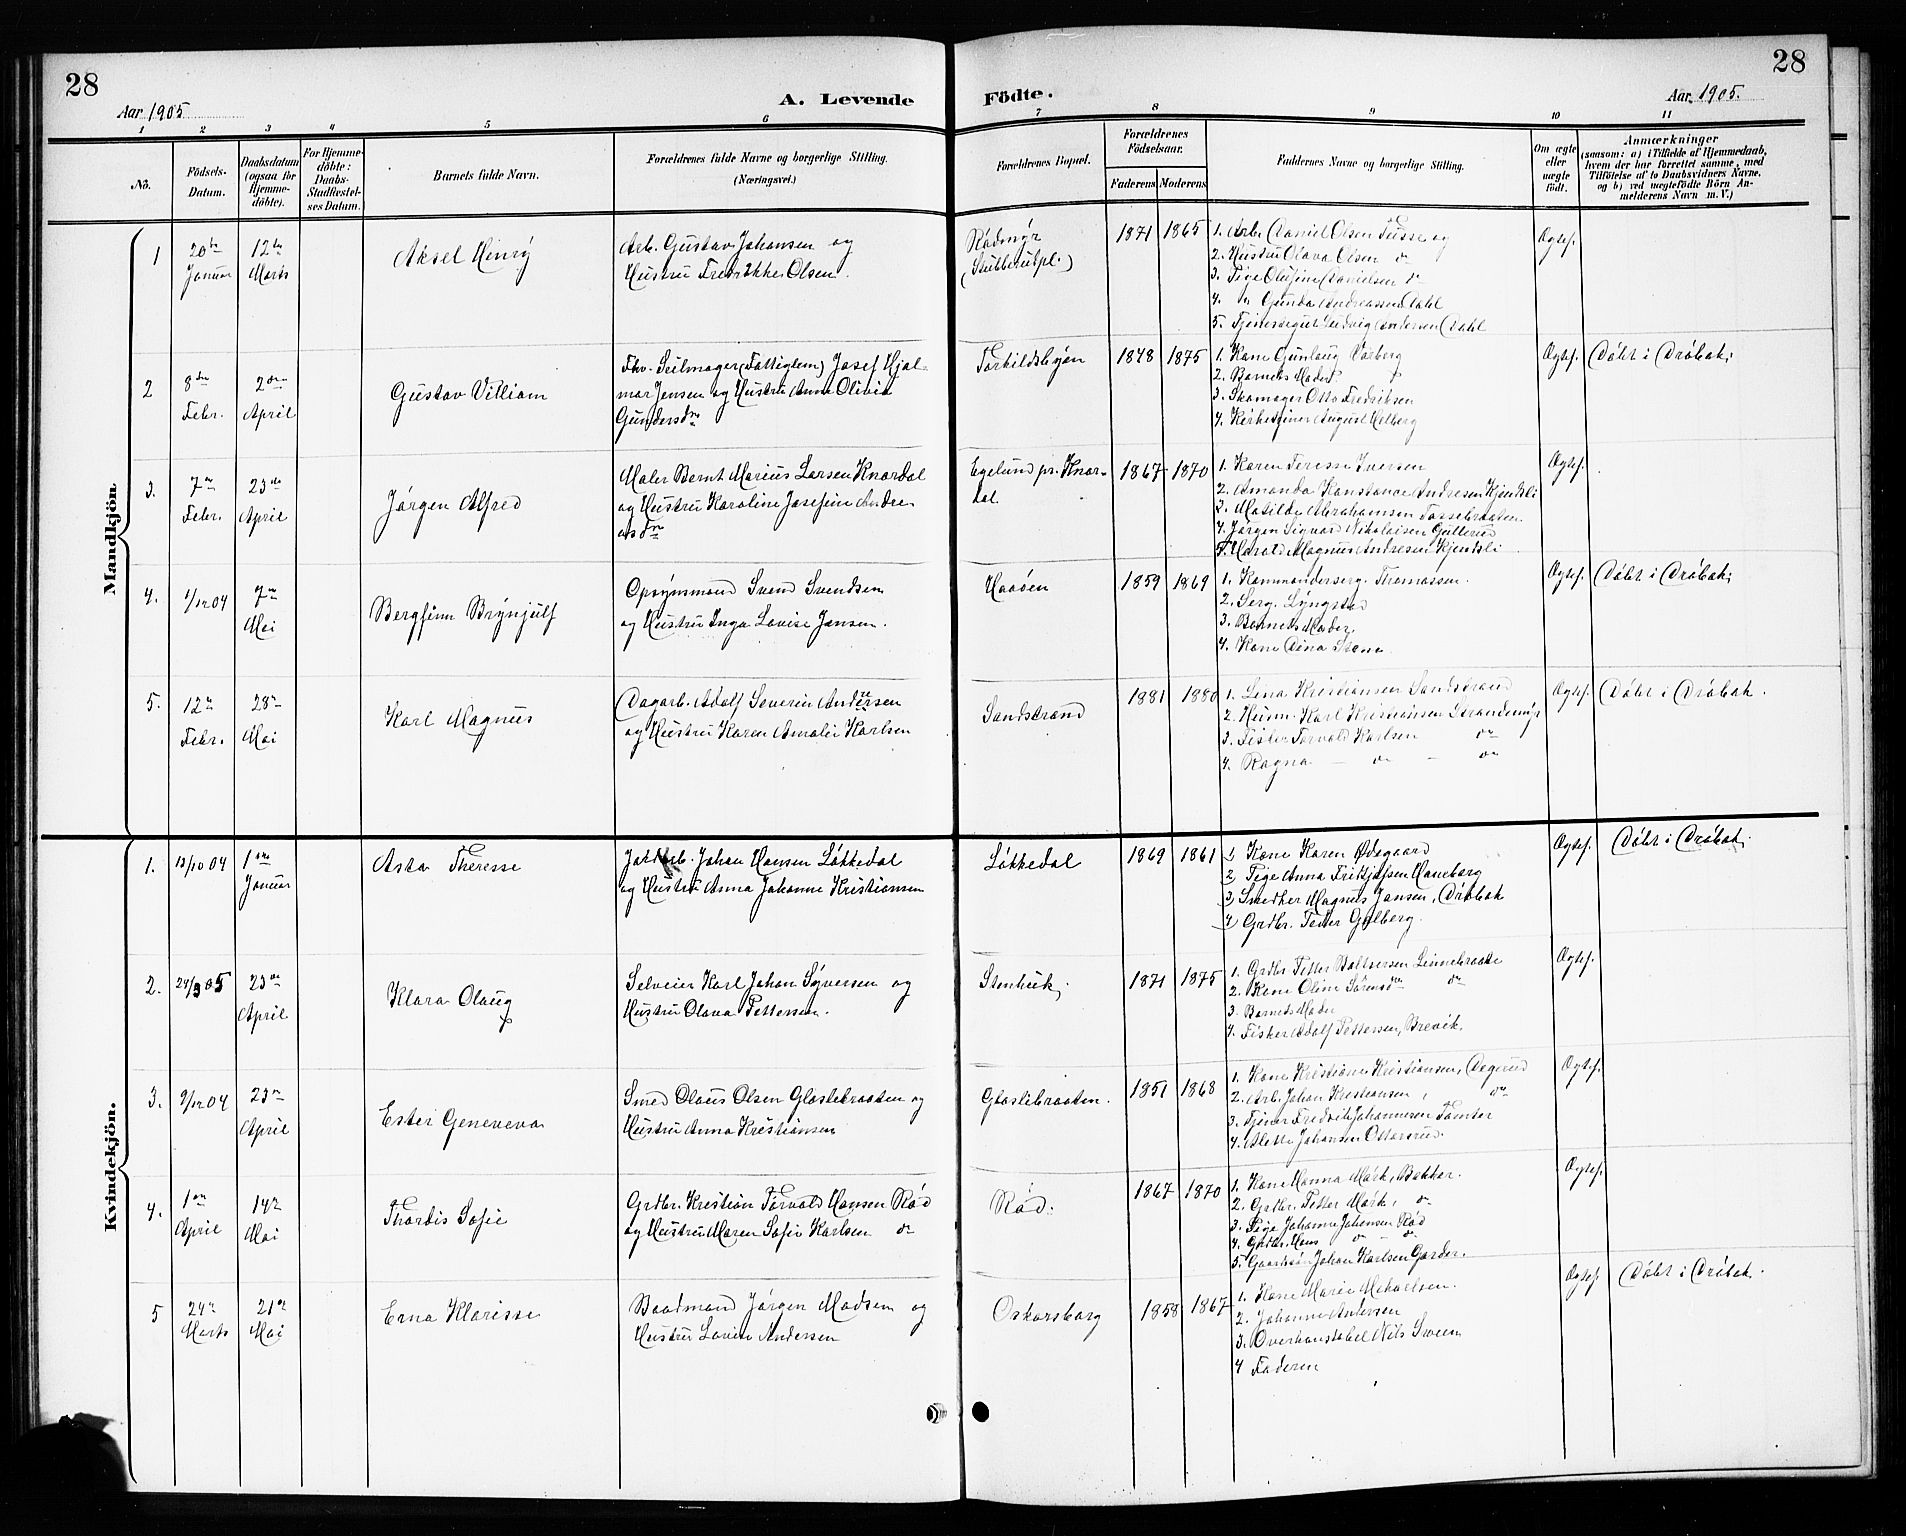 28
28
Aar 1905
A. Levende
Födte.
Aar 1905.
1 2 3 4 5 6 7 8 9 10 11
No.
Födsels-
Datum.
Daabsdatum
(ogsaa for
Hjemme-
döbte).
For Hjemme-
döbte:
Daabs-
Stadfæstel-
ses Datum.
Barnets fulde Navn.
Forældrenes fulde Navne og borgerlige Stilling.
(Næringsvei.)
Forældrenes Bopæl.
Forældrenes
Födselsaar.
Faderens
Moderens
Faddernes Navne og borgerlige Stilling.
Om ægte
eller
uægte
födt.
Anmærkninger
(saasom: a) i Tilfælde af Hjemmedaab,
hvem der har forrettet samme, med
Tilföielse af to Daabsvidners Navne,
og b) ved uægtefödte Börn An-
melderens Navn m. V.)
Mandkjön
1
20de
Januar
12te
Marts
Aksel Henrÿ
Arb. Gustav Johansen og
Hustru Fredrikke Olsen.
Rødmÿr
(Stubberudpl.)
1871
1865
1. Arb. Daniel Olsen Tusse og
2. Hustru Olava Olsen do
3. Pige Olufine Danielsen do
4. " Gunda Andreassen Dahl
5. Tjenestegut Ludvig Andersen Dahl
Ægtef.
2
8de
Febr.
2den
April
Gustav Villiam
Fhv. Seilmager (Fattiglem) Josef Hjal-
mar Jensen og Hustru Anna Olivia
Gundersdtr
Torkildsbyen
1848
1875
1. Kone Gunlaug Varberg
2. Barnets Moder
3. Skomager Otto Fredriksen
4. Kirketjener August Helberg
Ægtef.
Döbt i Dröbak.
3.
7de
Febr.
23de
April
Jörgen Alfred
Maler Bernt Marius Larsen Knardal
og Hustru Karoline Josefine Andre-
asdtr
Egelund pr. Knar-
dal
1867
1870
1. Karen Terese Iversen
2. Amanda Konstance Andresen Kjendsli
3. Matilde Abrahamsen Tossebraaten
4. Jörgen Sigvard Nikolaisen Gulterud
5. Harald Magnus Andresen Kjendsli
Ægtef.
4.
1/12 04
7de
Mai
Bergfinn Brÿnjulf
Opsÿnsmand Svend Svendsen
og Hustru Inga Lovise Jansen.
Haaöen
1859
1869
1. Kommandersers. Thomassen.
2. Serg. Lÿngstad
3. Barnets Moder.
4. Kone Dina Stene
Ægtef.
Döbt i Dröbak.
5.
12te
Febr.
28de
Mai
Karl Magnus
Dagarb. Adolf Severin Andersen
og Hustru Karen Amalie Karlsen
Sandstrand
1881
1880
1. Lina Kristiansen Sandstrand
2. Husm. Karl Kristiansen Strandengs
3. Fisker Torvald Karlsen do
4. Ragna — do — do
Ægtef.
Döbt i Dröbak.
Kvindekjön.
1.
13/10 04
1ste
Januar
Asta Theresse
Jordarb. Johan Hansen Løkkedal
og Hustru Anna Johanne Kristiansen
Løkkedal
1869
1861
1) Kone Karen Ødegaard
2) Pige Anna Frithjofsen Haneborg
3) Snedker Magnus Jansen, Dröbak
4) Grdbr. Petter Gylberg.
Ægtef.
Döbt i Dröbak.
2.
24/3 05
23de
April
Klara Olaug
Selveier Karl Johan Syversen og
Hustru Olava Pettersen.
Stenhuk.
1871
1875
1. Grdbr Petter Baltsersen Linnebraate
2. Kone Oline Sörensdtr do
3. Barnets Moder
4. Fisker Adolf Pettersen, Brevik.
Ægtef.
3.
9/12 04
23de
April
Ester Geneveva
Smed Olaus Olsen Glaslibraaten og
Hustru Anna Kristiansen
Glaslibraaten.
1851
1868
1. Kone Kristiane Kristiansen, Degerud
2. Arb. Johan Kristiansen, do
3. Tjener Fredrik Johannesen Tomter
4. Alette Johansen Ottarsrud.
Ægtef.
4.
1ste
April
14de
Mai
Thordis Sofie
Grdbr. Kristian Torvald Hansen Rød
og Hustru Maren Sofie Karlsen do
Rød.
1867
1870
1. Kone Hanna Mörk, Bakker.
2. Grdbr. Petter Mörk, do
3. Pige Johanne Johansen Rød
4. Grdbr. Hans do do
5. Gaardsön Johan Karlsen Garder.
Ægtef.
5
24de
Marts
21de
Mai
Erna Klarisse
Baadmand Jörgen Madsen og
Hustru Lovise Andersen
Oskarsborg
1858
1867
1. Kone Marie Mikaelsen.
2. Johanne Andersen
3. Overkonstabel Nils Sveen
4 Faderen
Ægtef.
Döbt i Dröbak.